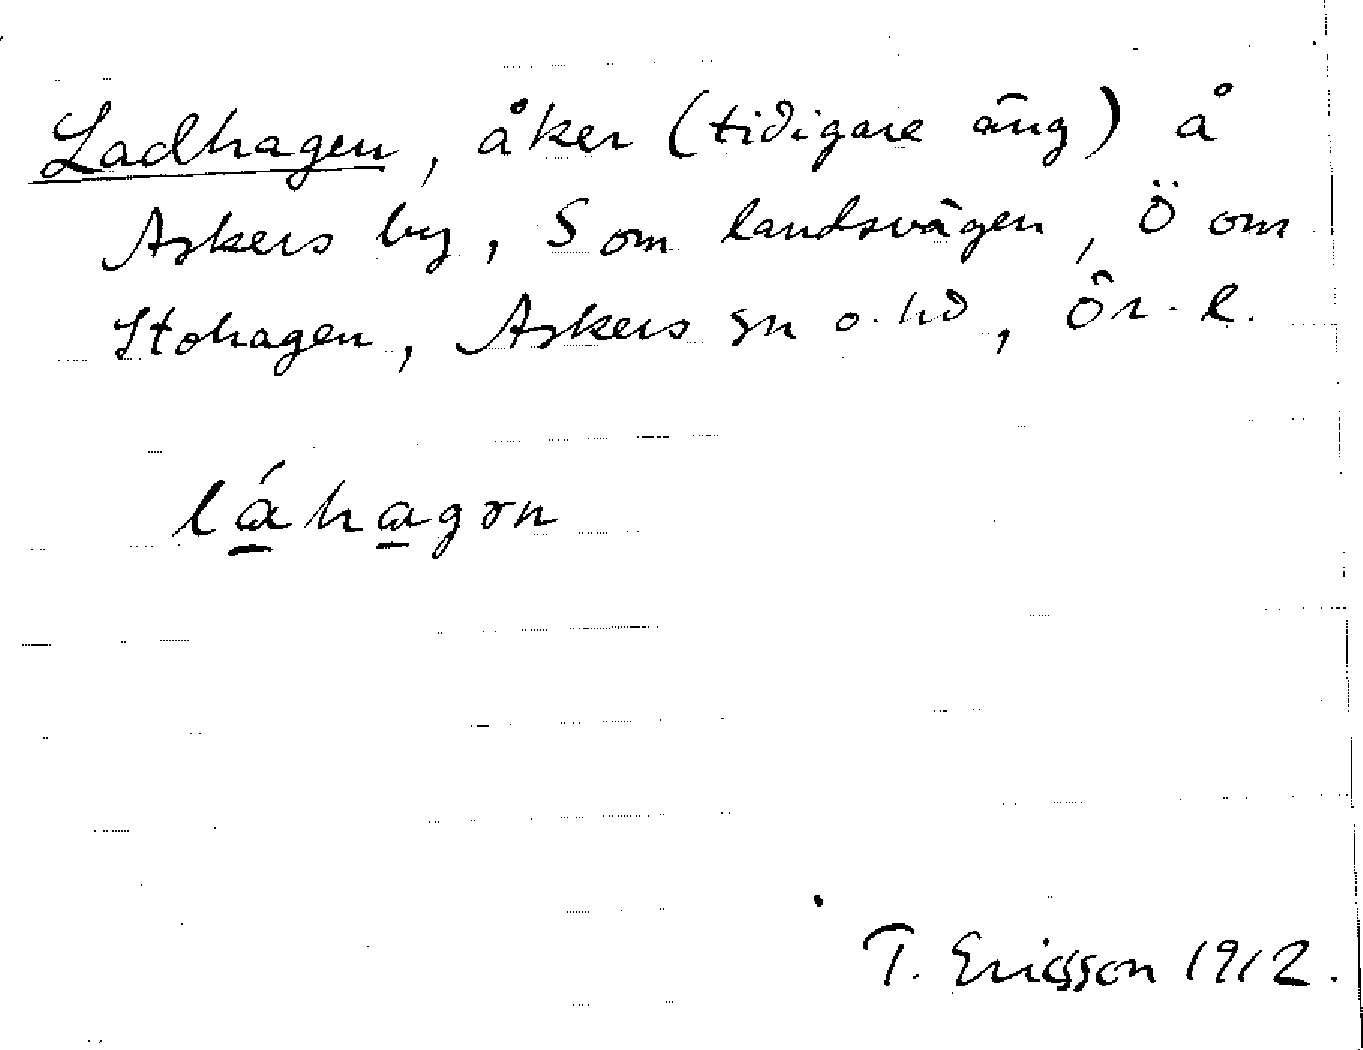 Ladhagen, åker (tidigare äng) å
Askers by, S om landsvägen, Ö om
Stohagen, Askers sn o. hd, Ör. l.
láhagɤn
T. Ericsson 1912.